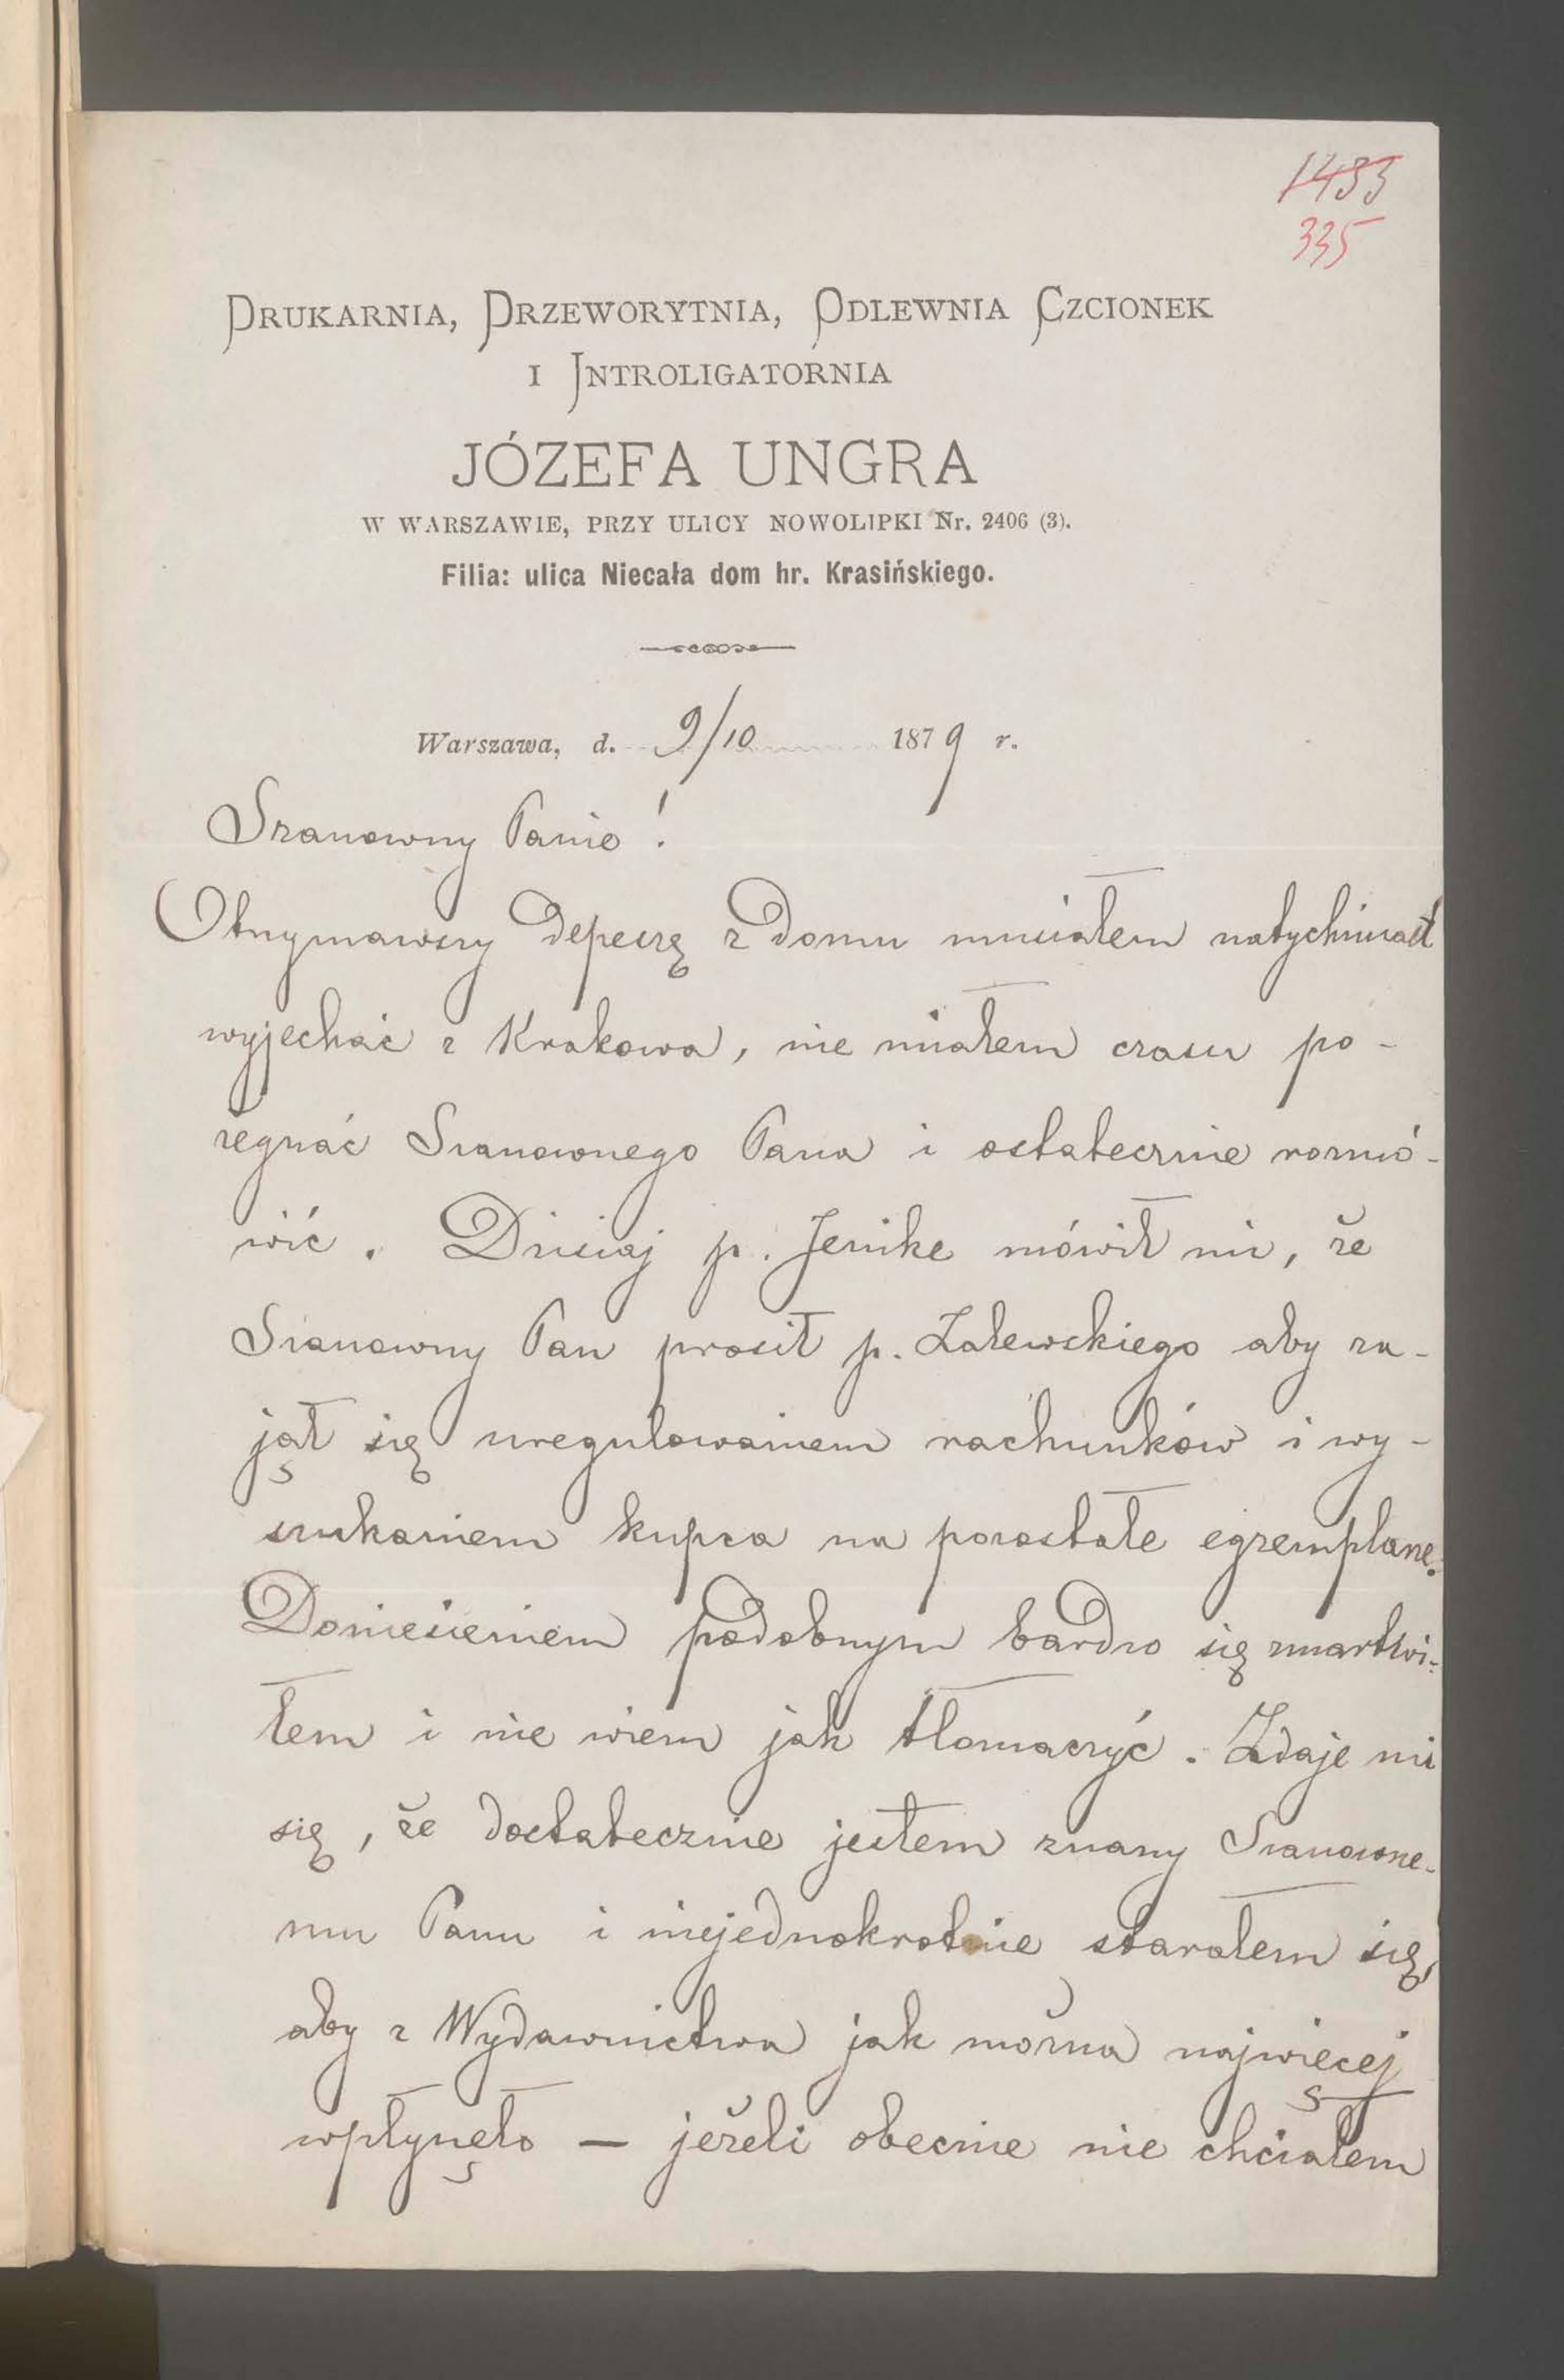 1433
335
DRUKARNIA, DRZEWORYTNIA, ODLEWNIA CZCIONEK
I INTROLIGATORNIA
JÓZEFA UNGRA
W WARSZAWIE, PRZY ULICY NOWOLIPKI Nr. 2406 (3).
Filia: ulica Niecała dom hr. Krasińskiego.
Warszawa, d. 9/10 1879 r.
Szanowny Panie!
Otrzymawszy depeszę z domu musiałem natychmiast
wyjechać z Krakowa, nie miałem czasu po-
żegnać Szanownego Pana i ostatecznie rozmó-
wić. Dzisiaj p. Jenike mówił mi, że
Szanowny Pan prosił p. Zalewskiego aby za-
jął się uregulowaniem rachunków i wy-
szukaniem kupca na pozostałe egzemplarze.
Doniesieniem podobnym bardzo się zmartwi-
łem i nie wiem jak tłomaczyć. Zdaje mi
się, że dostatecznie jestem znany Szanowne-
mu Panu i niejednokrotnie starałem się,
aby z Wydawnictwa jak można najwięcej
wpłynęło — jeżeli obecnie nie chciałem